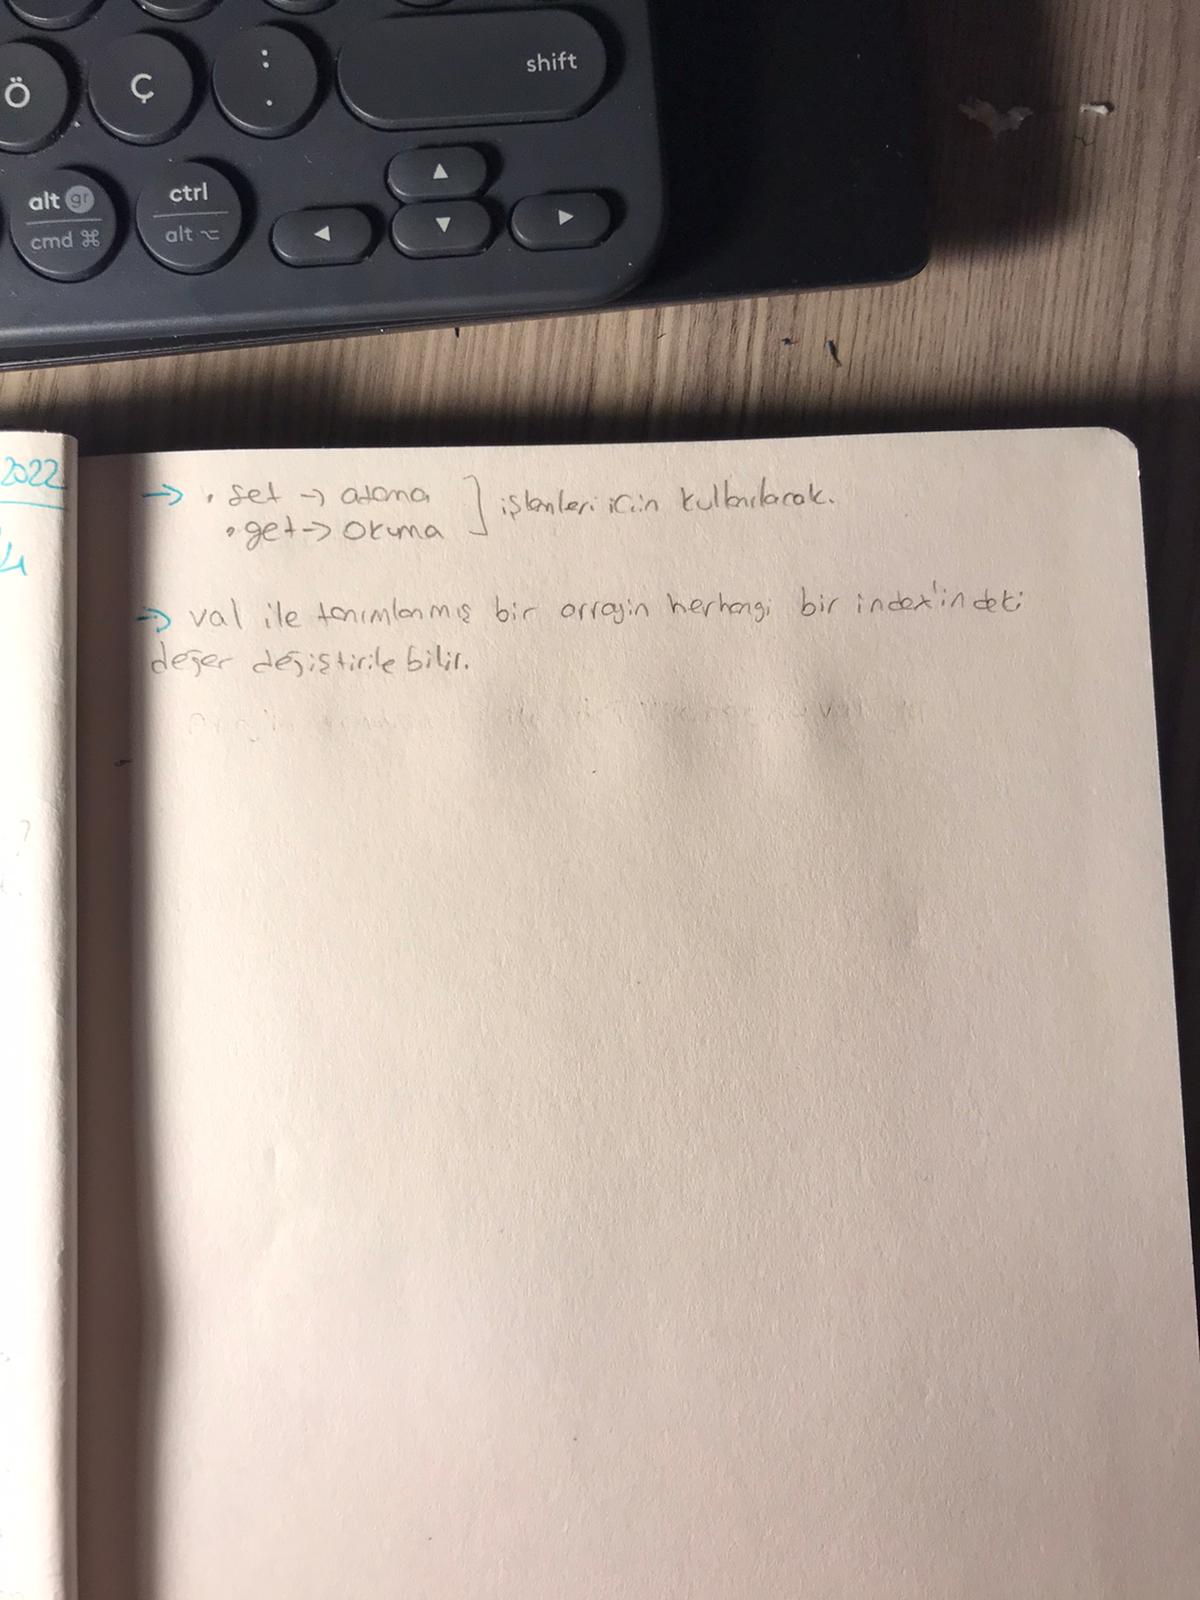 Ö Ç : . shift
alt gr ctrl
cmd ⌘ alt ⌥
2022
→ • set → atama ] işlemleri için kullanılacak.
• get → okuma
→ val ile tanımlanmış bir arrayin herhangi bir index'indeki
değer değiştirilebilir.